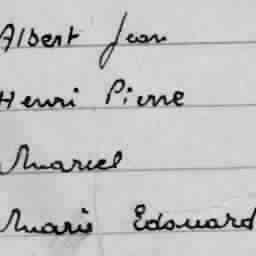 Albert Jean
Henri Pierre
Marcel
Marie Edouard